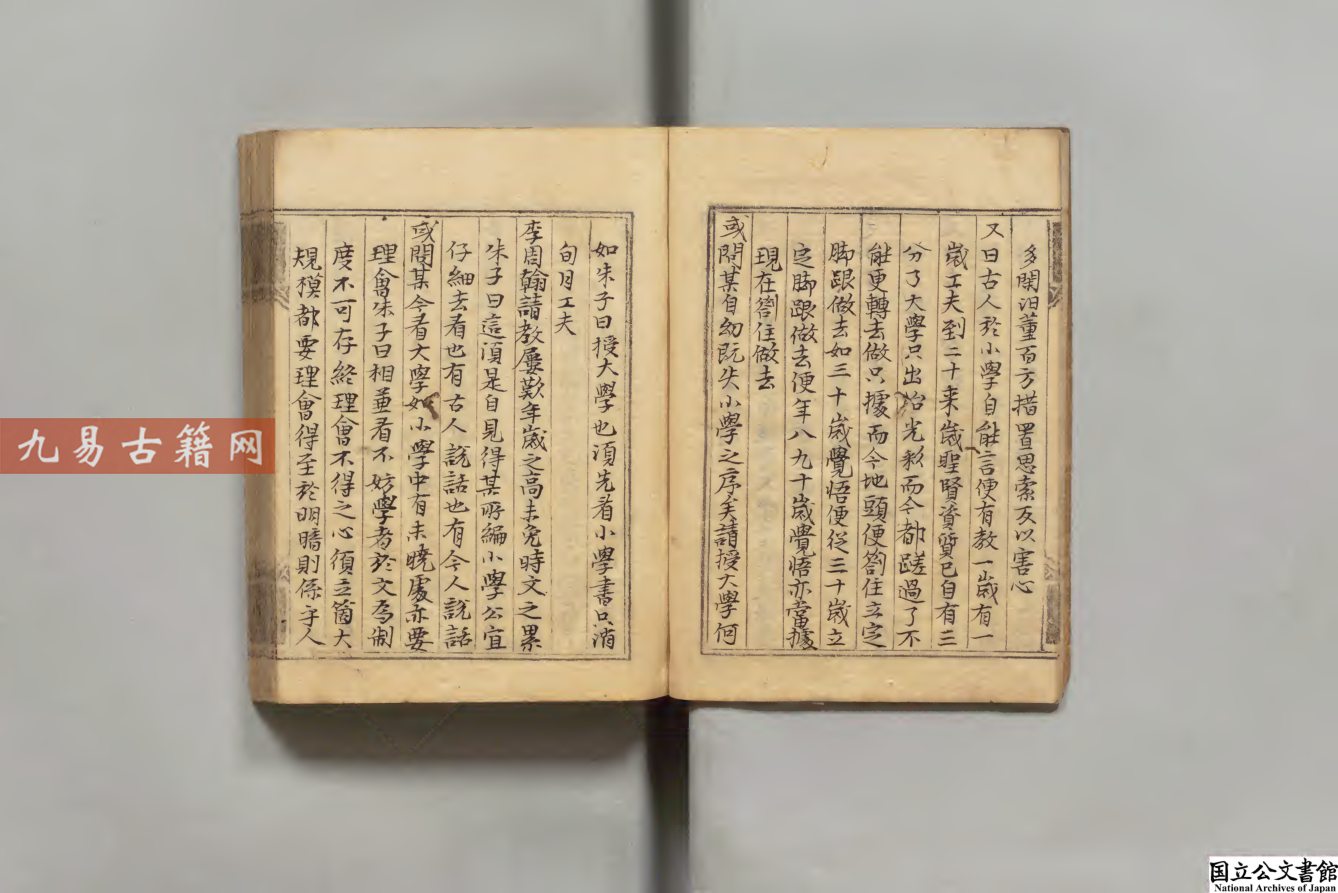 多閑汨董百方措置思索反以害心
又曰古人於小學自能言便有教一歲有一
歲工夫到二十来歲聖賢資質已自有三
分了大學只出治光彩而今都蹉過了不
能更轉去做只據而今地頭便劄住立定
脚跟做去如三十歲覺悟便從三十歲立
定脚跟做去便年八九十歲覺悟亦當據
現在劄住做去
或問某自幼既失小學之序矣請授大學何
如朱子曰授大學也須先看小學書只消
旬月工夫
李周翰請教屢歎年歲之高未免時文之累
朱子曰這須是自見得某所編小學公宜
仔細去看也有古人說話也有今人說話
或問某今看大學如小學中有未曉處亦要
理會朱子曰相兼看不妨學者於文為制
度不可存終理會不得之心須立箇大
規模都要理會得至於明暗則係乎人
九易古籍网
国立公文書館
National Archives of Japan